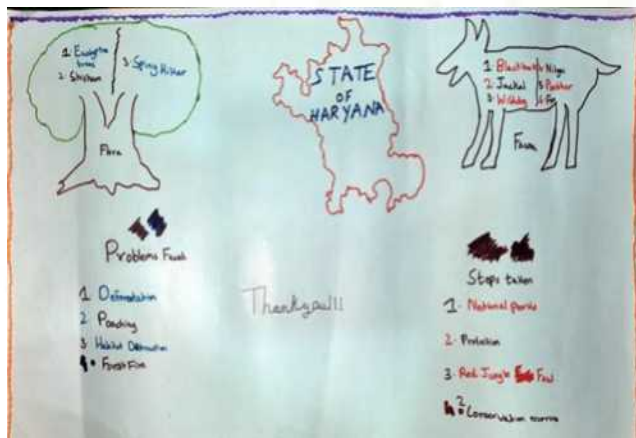 1. Eucalyptus
trees
2. Shisham
3. Spiny Killer
Flora
STATE
OF
HARYANA
1. Blackbuck
2. Jackal
3. Wild dog
4. Nilgai
5. Panther
6. Fox
Fauna
Problems Faced
1 Deforestation
2 Poaching
3 Habitat Destruction
Forest Fire
Thankyou!!!
Steps taken
1. National parks
2. Protection
3. Red Jungle Fowl
Conservation